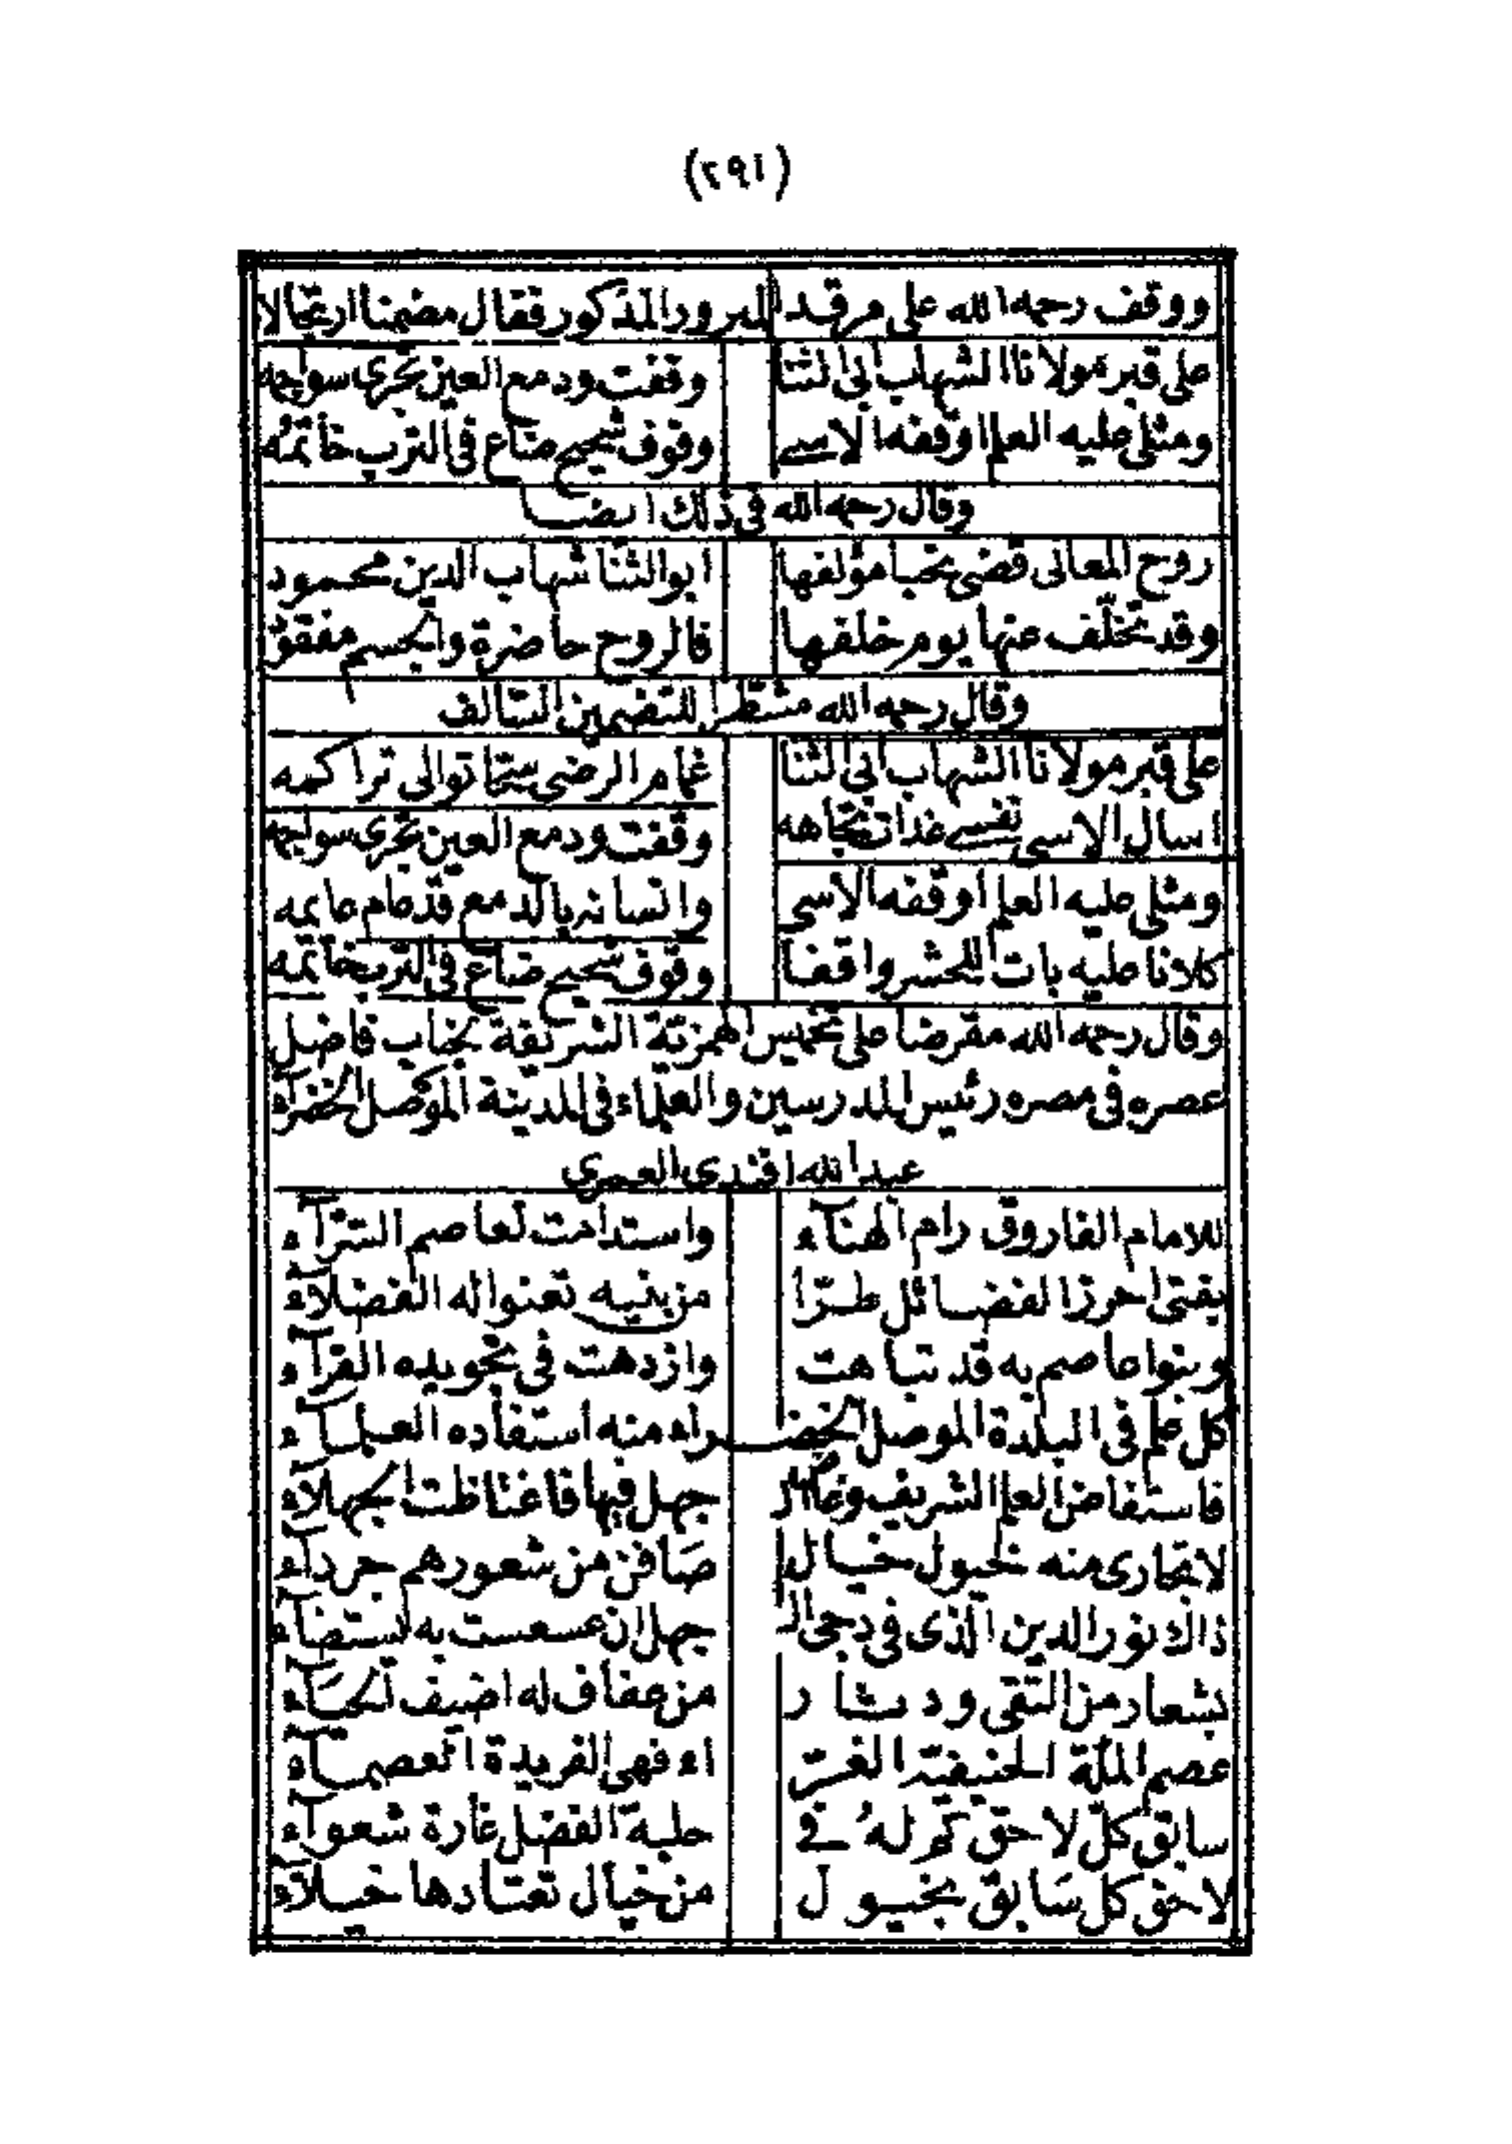 (٢٩١)
ووقف رحمه الله على مرقد المبرور المذكور فقال مضمنا ارتجالا
على قبر مولانا الشهاب ابى الثنا وقفت ودمع العين تجرى سواجمه
ومثلى عليه العلم اوقفه الاسى وقوف شحيح ضاع فى الترب خاتمه
وقال رحمه الله فى ذلك ايضا
روح المعالى قضى نحبا مؤلفها ابو الثنا شهاب الدين محمود
وقد تخلّف عنها يوم خلفها فالروح حاضرة والجسم مفقود
وقال رحمه الله مشطرا للتضمين السالف
على قبر مولانا الشهاب ابى الثنا غمام الرضى ستما توالى تراكمه
اسال الاسى نفسى غداة تجاهه وقفت ودمع العين تجرى سواجمه
ومثلى عليه العلم اوقفه الاسى وانسانه بالدمع قد عام عايمه
كلانا عليه بات للحشر واقفا وقوف شحيح ضاع فى الترب خاتمه
وقال رحمه الله مقرضا على تخميس الهمزيّة الشريفة لجناب فاضل
عصره فى مصره رئيس المدرسين والعلماء فى المدينة الموصل الخضراء
عبد الله افندى العمري
للامام الفاروق رام الهنآء واستدامت لعاصم السرّآء
بفتى احرز الفضائل طرّا من بنيه تعنوا له الفضلآء
وبنوا عاصم به قد تباهت وازدهت فى تجويده القرآء
كل علم فى البلدة الموصل الخضـراء منه استفاده العلمآء
فاستفاض العلم الشريف وغاض الـ جهل فيها فاغتاظت الجهلآء
لا تجارى منه خيول خيال صَافن من شعورهم جردآء
ذاك نور الدين الّذى فى دجى الـ جهل ان عسعست به يستضآء
بشعار من التقى ودثار من عفاف له اضيف الحيَآء
عصم الملّة الحنيفيّة الغرّ اء فهى الفريدة العصمآء
سابق كلّ لاحق كم لهُ فى حلبة الفضل غارة شعوآء
لاحق كل سَابق بخيول من خيال تعتادها خيلآء